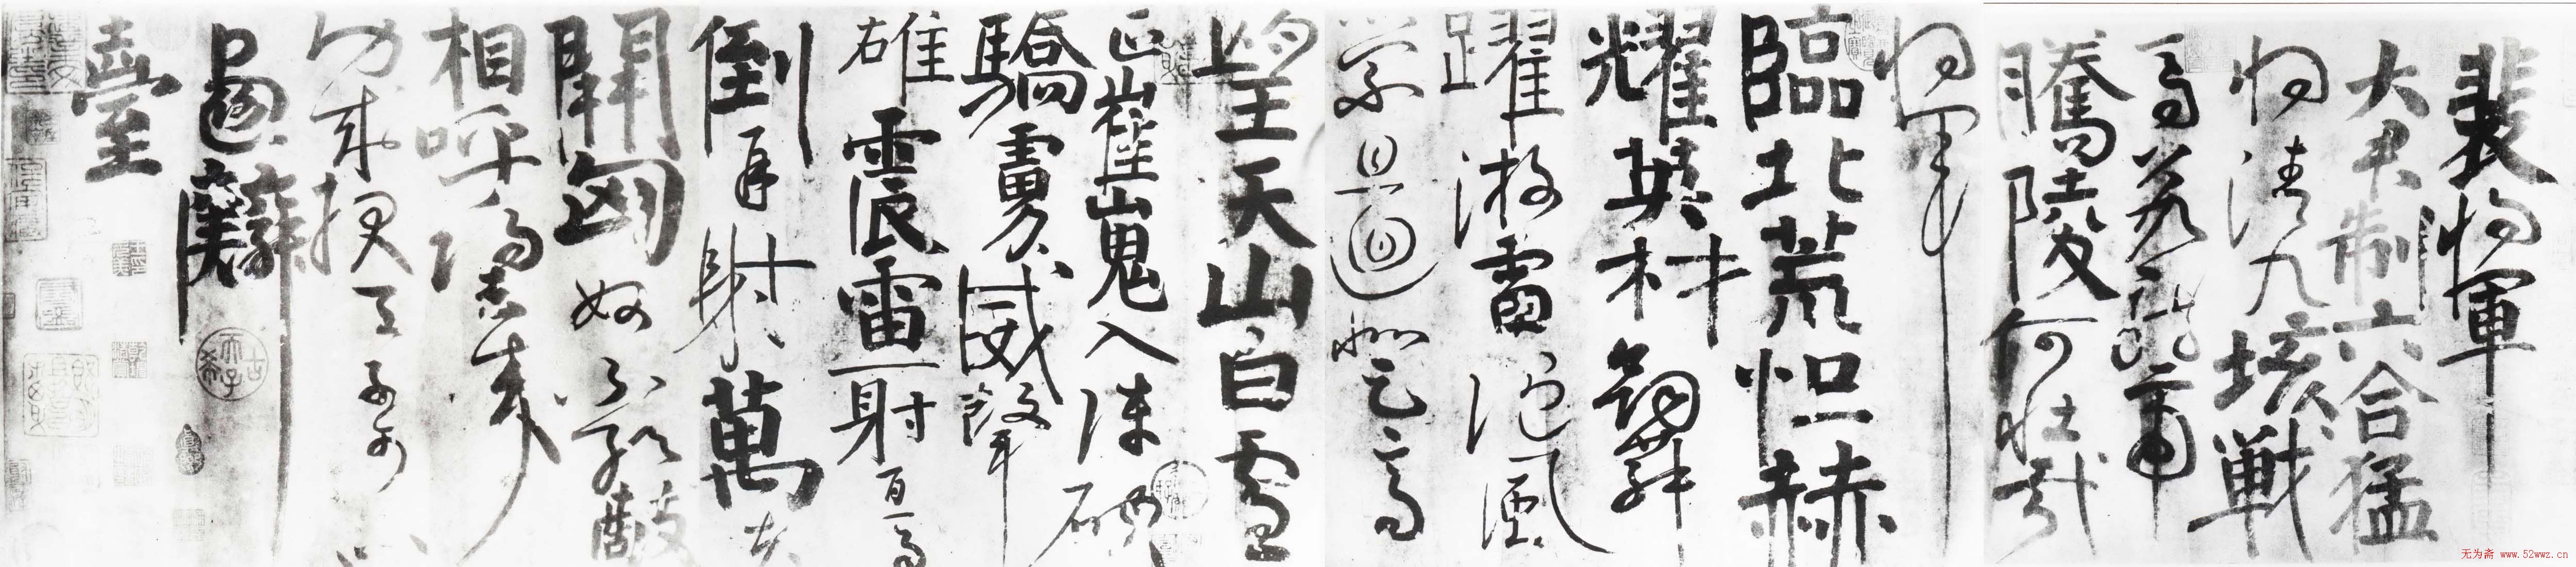 裴將軍
大君制六合猛
將清九垓戰
馬若龍虎
騰陵何壯哉
將軍
臨北荒恒赫
耀英材劍舞
躍游電隨風
縈且迴登高
望天山白雪
正崔嵬入陣破
驕虜威聲
雄震雷一射百馬
倒再射萬夫
開匈奴不敢敵
相呼歸去來
功成報天子可以
畫麟
臺
古希天子
无为斋 www.52wwz.cn